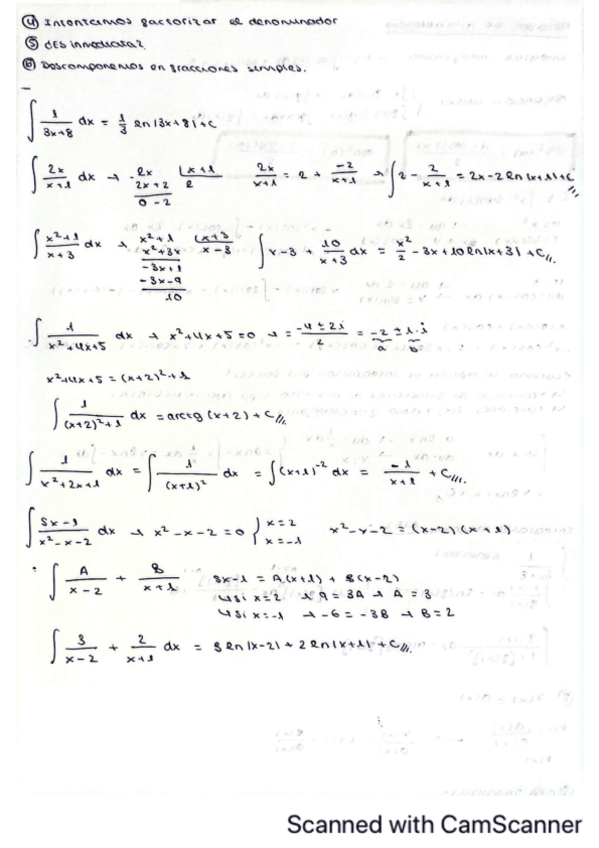 ④ Intentamos factorizar el denominador
⑤ ¿Es inmediata?
⑥ Descomponemos en fracciones simples.
∫ 1/(3x+8) dx = 1/3 ln|3x+8|+c
∫ 2x/(x+1) dx → 2x |x+1 2x+2 2 0-2 2x/(x+1) = 2 + -2/(x+1) → ∫ 2 - 2/(x+1) = 2x-2 ln|x+1|+c
∫ (x²+1)/(x+3) dx → x²+1 |x+3 x²+3x x-3 -3x+1 -3x-9 10 ∫ x-3 + 10/(x+3) dx = x²/2 - 3x+10 ln|x+3| + C
∫ 1/(x²+4x+5) dx → x²+4x+5=0 → = (-4±2i)/2 = -2 ± 1·i
a b
x²+4x+5 = (x+2)²+1
∫ 1/((x+2)²+1) dx = arctg (x+2) + C
∫ 1/(x²+2x+1) dx = ∫ 1/(x+1)² dx = ∫(x+1)⁻² dx = -1/(x+1) + C
∫ (5x-1)/(x²-x-2) dx → x²-x-2=0 { x=2 x=-1 x²-x-2=(x-2)(x+1)
· ∫ A/(x-2) + B/(x+1) 5x-1 = A(x+1) + B(x-2)
↳ si x=2 → 9=3A → A=3
↳ si x=-1 → -6=-3B → B=2
∫ 3/(x-2) + 2/(x+1) dx = 3 ln|x-2|+2 ln|x+1|+C
Scanned with CamScanner